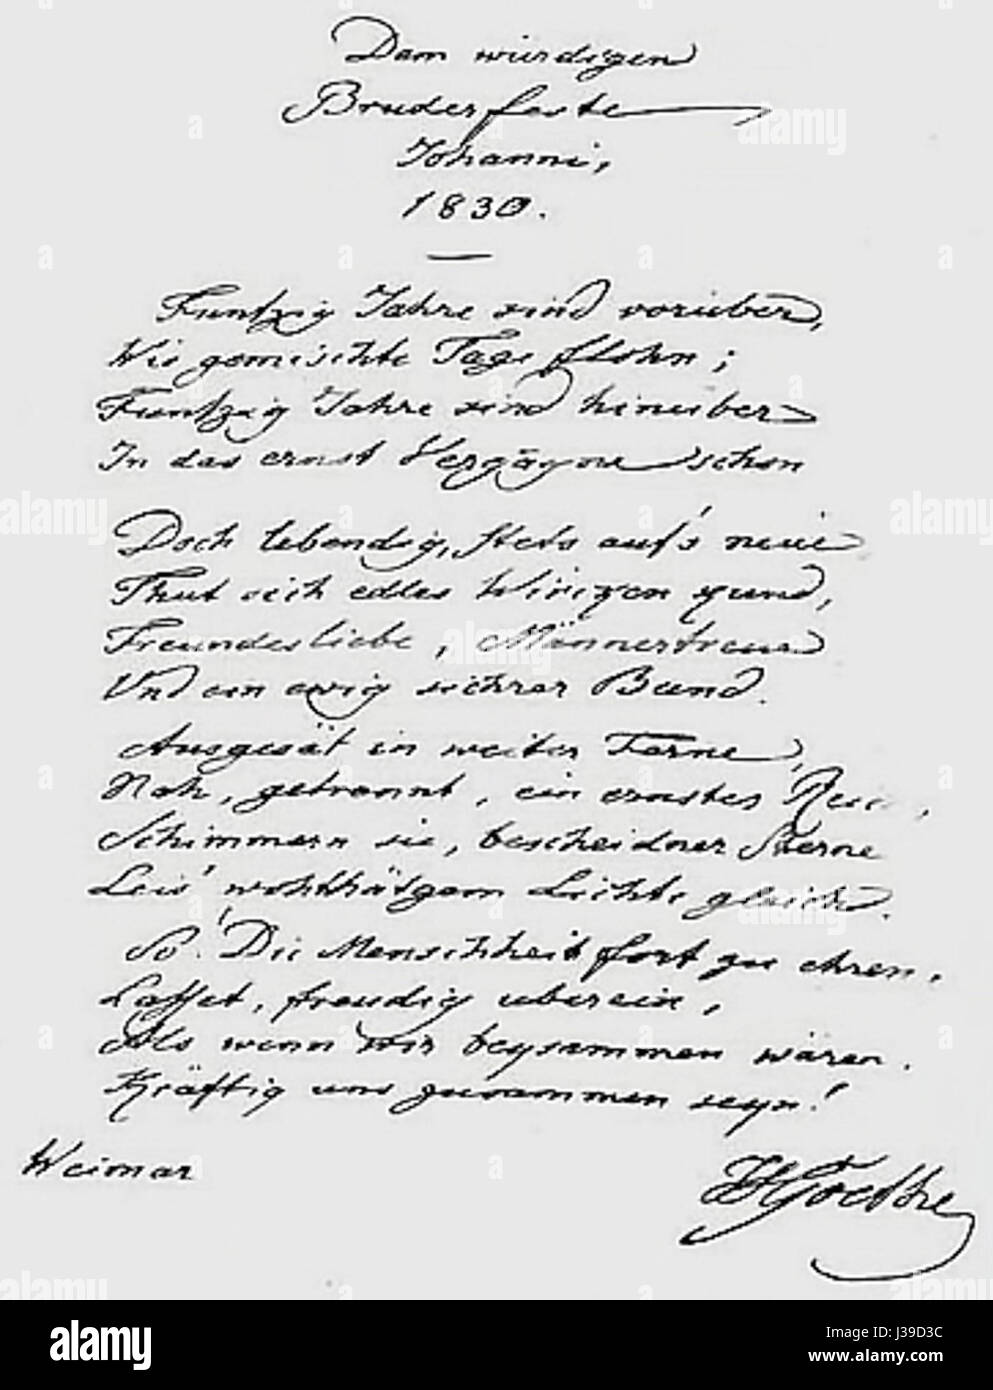 Dem würdigen
Bruderfeste
Johanni,
1830.
Funfzig Jahre sind vorüber,
Wie gemischte Tage flohn;
Funfzig Jahre sind hinüber
In das ernst Vergangne schon
Doch lebendig, stets auf's neue
Thut sich edles Wirken kund,
Freundesliebe, Männertreue
Und ein ewig sichrer Bund.
Ausgesät in weiter Ferne,
Nah, getrennt, ein ernstes Reich,
Schimmern sie, bescheidner Sterne
Leis' wohlthätgem Lichte gleich.
So! Die Menschheit fort zu ehren,
Lasset, freudig überein,
Als wenn wir beysammen wären,
Kräftig uns zusammen seyn!
Weimar
JWGoethe
alamy
Image ID: J39D3C
www.alamy.com